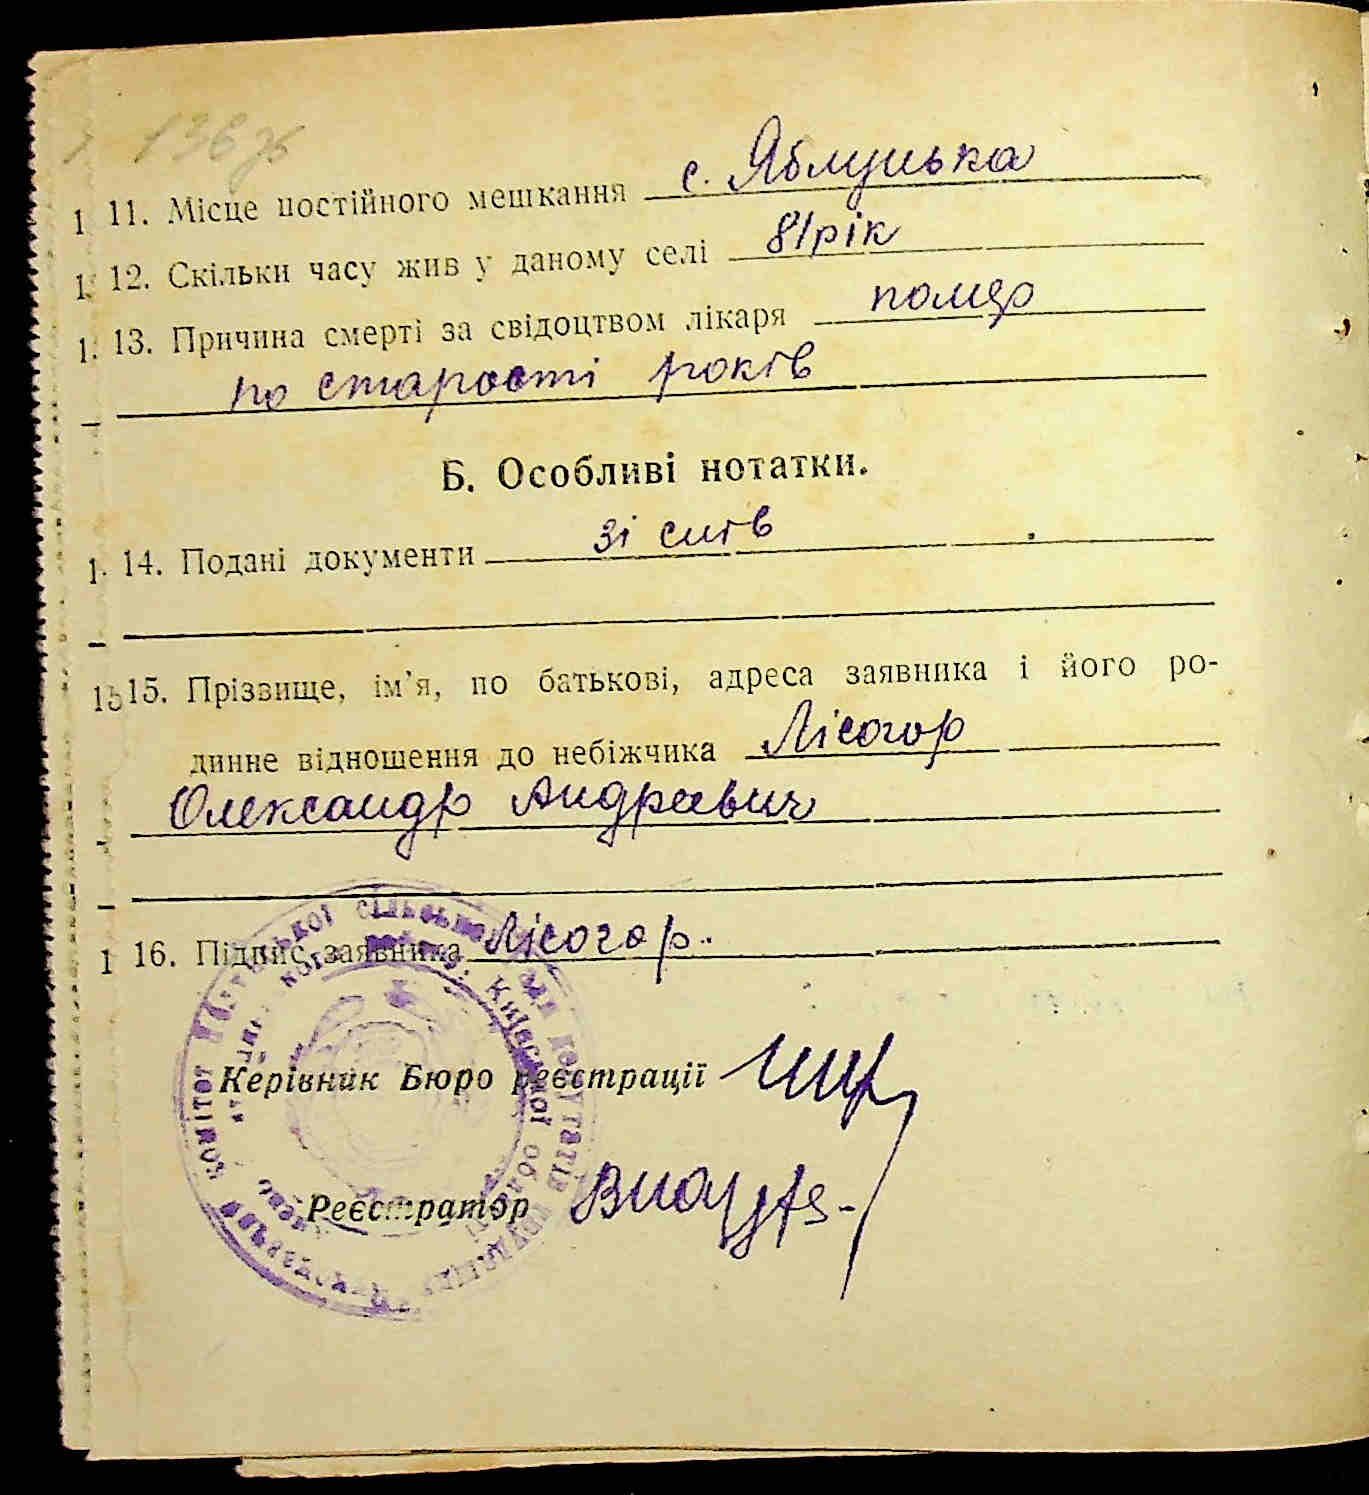 136
11. Місце постійного мешкання с. Яблунька
12. Скільки часу жив у даному селі 81 рік
13. Причина смерті за свідоцтвом лікаря помер
по старості років
Б. Особливі нотатки.
14. Подані документи зі слів
15. Прізвище, ім'я, по батькові, адреса заявника і його ро-
динне відношення до небіжчика Лісогор
Олександр Андреевич
16. Підпис заявника Лісогор.
Керівник Бюро реєстрації
Реєстратор
сільської ради депутатів трудящих
Київської області
комітет